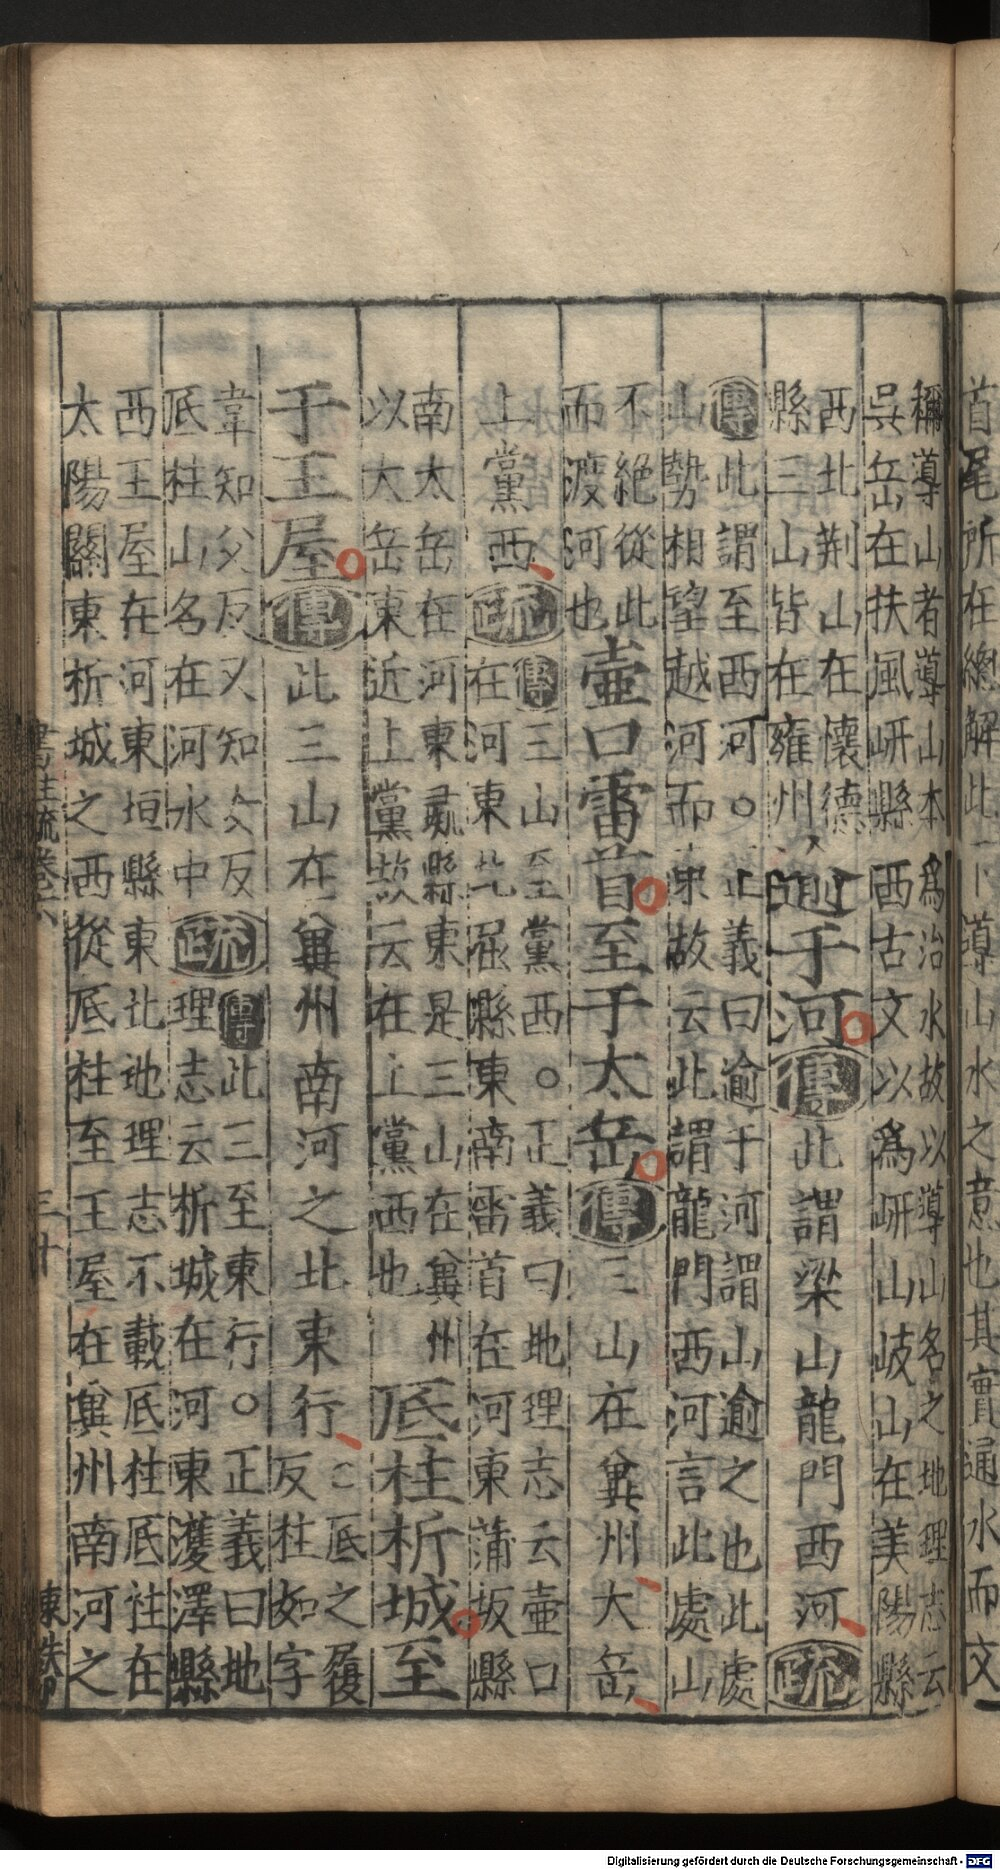 首尾所在總解此下導山水之意也其實通水而文
稱導山者導山本爲治水故以導山名之地理志云
吳岳在扶風岍縣西古文以爲岍山岐山在美陽縣
西北荆山在懷德
縣三山皆在雍州
逾于河
傳此謂梁山龍門西河
疏
傳此謂至西河○正義曰逾于河謂山逾之也此處
山勢相望越河而東故云此謂龍門西河言此處山
不絕從此
而渡河也
壷口雷首至于太岳
傳三山在兾州大岳
上黨西
疏
傳三山至黨西○正義曰地理志云壷口
在河東北屈縣東南雷首在河東蒲坂縣
南太岳在河東彘縣東是三山在兾州
以大岳東近上黨故云在上黨西也
厎柱析城至
于王屋
傳此三山在兾州南河之北東行
厎之履
反柱如字
韋知父反又知父反
疏
傳此三至東行○正義曰地
厎柱山名在河水中
理志云析城在河東濩澤縣
西王屋在河東垣縣東北地理志不載厎柱厎柱在
太陽關東析城之西從厎柱至王屋在兾州南河之
書註疏卷六
三十
Digitalisierung gefördert durch die Deutsche Forschungsgemeinschaft - DFG